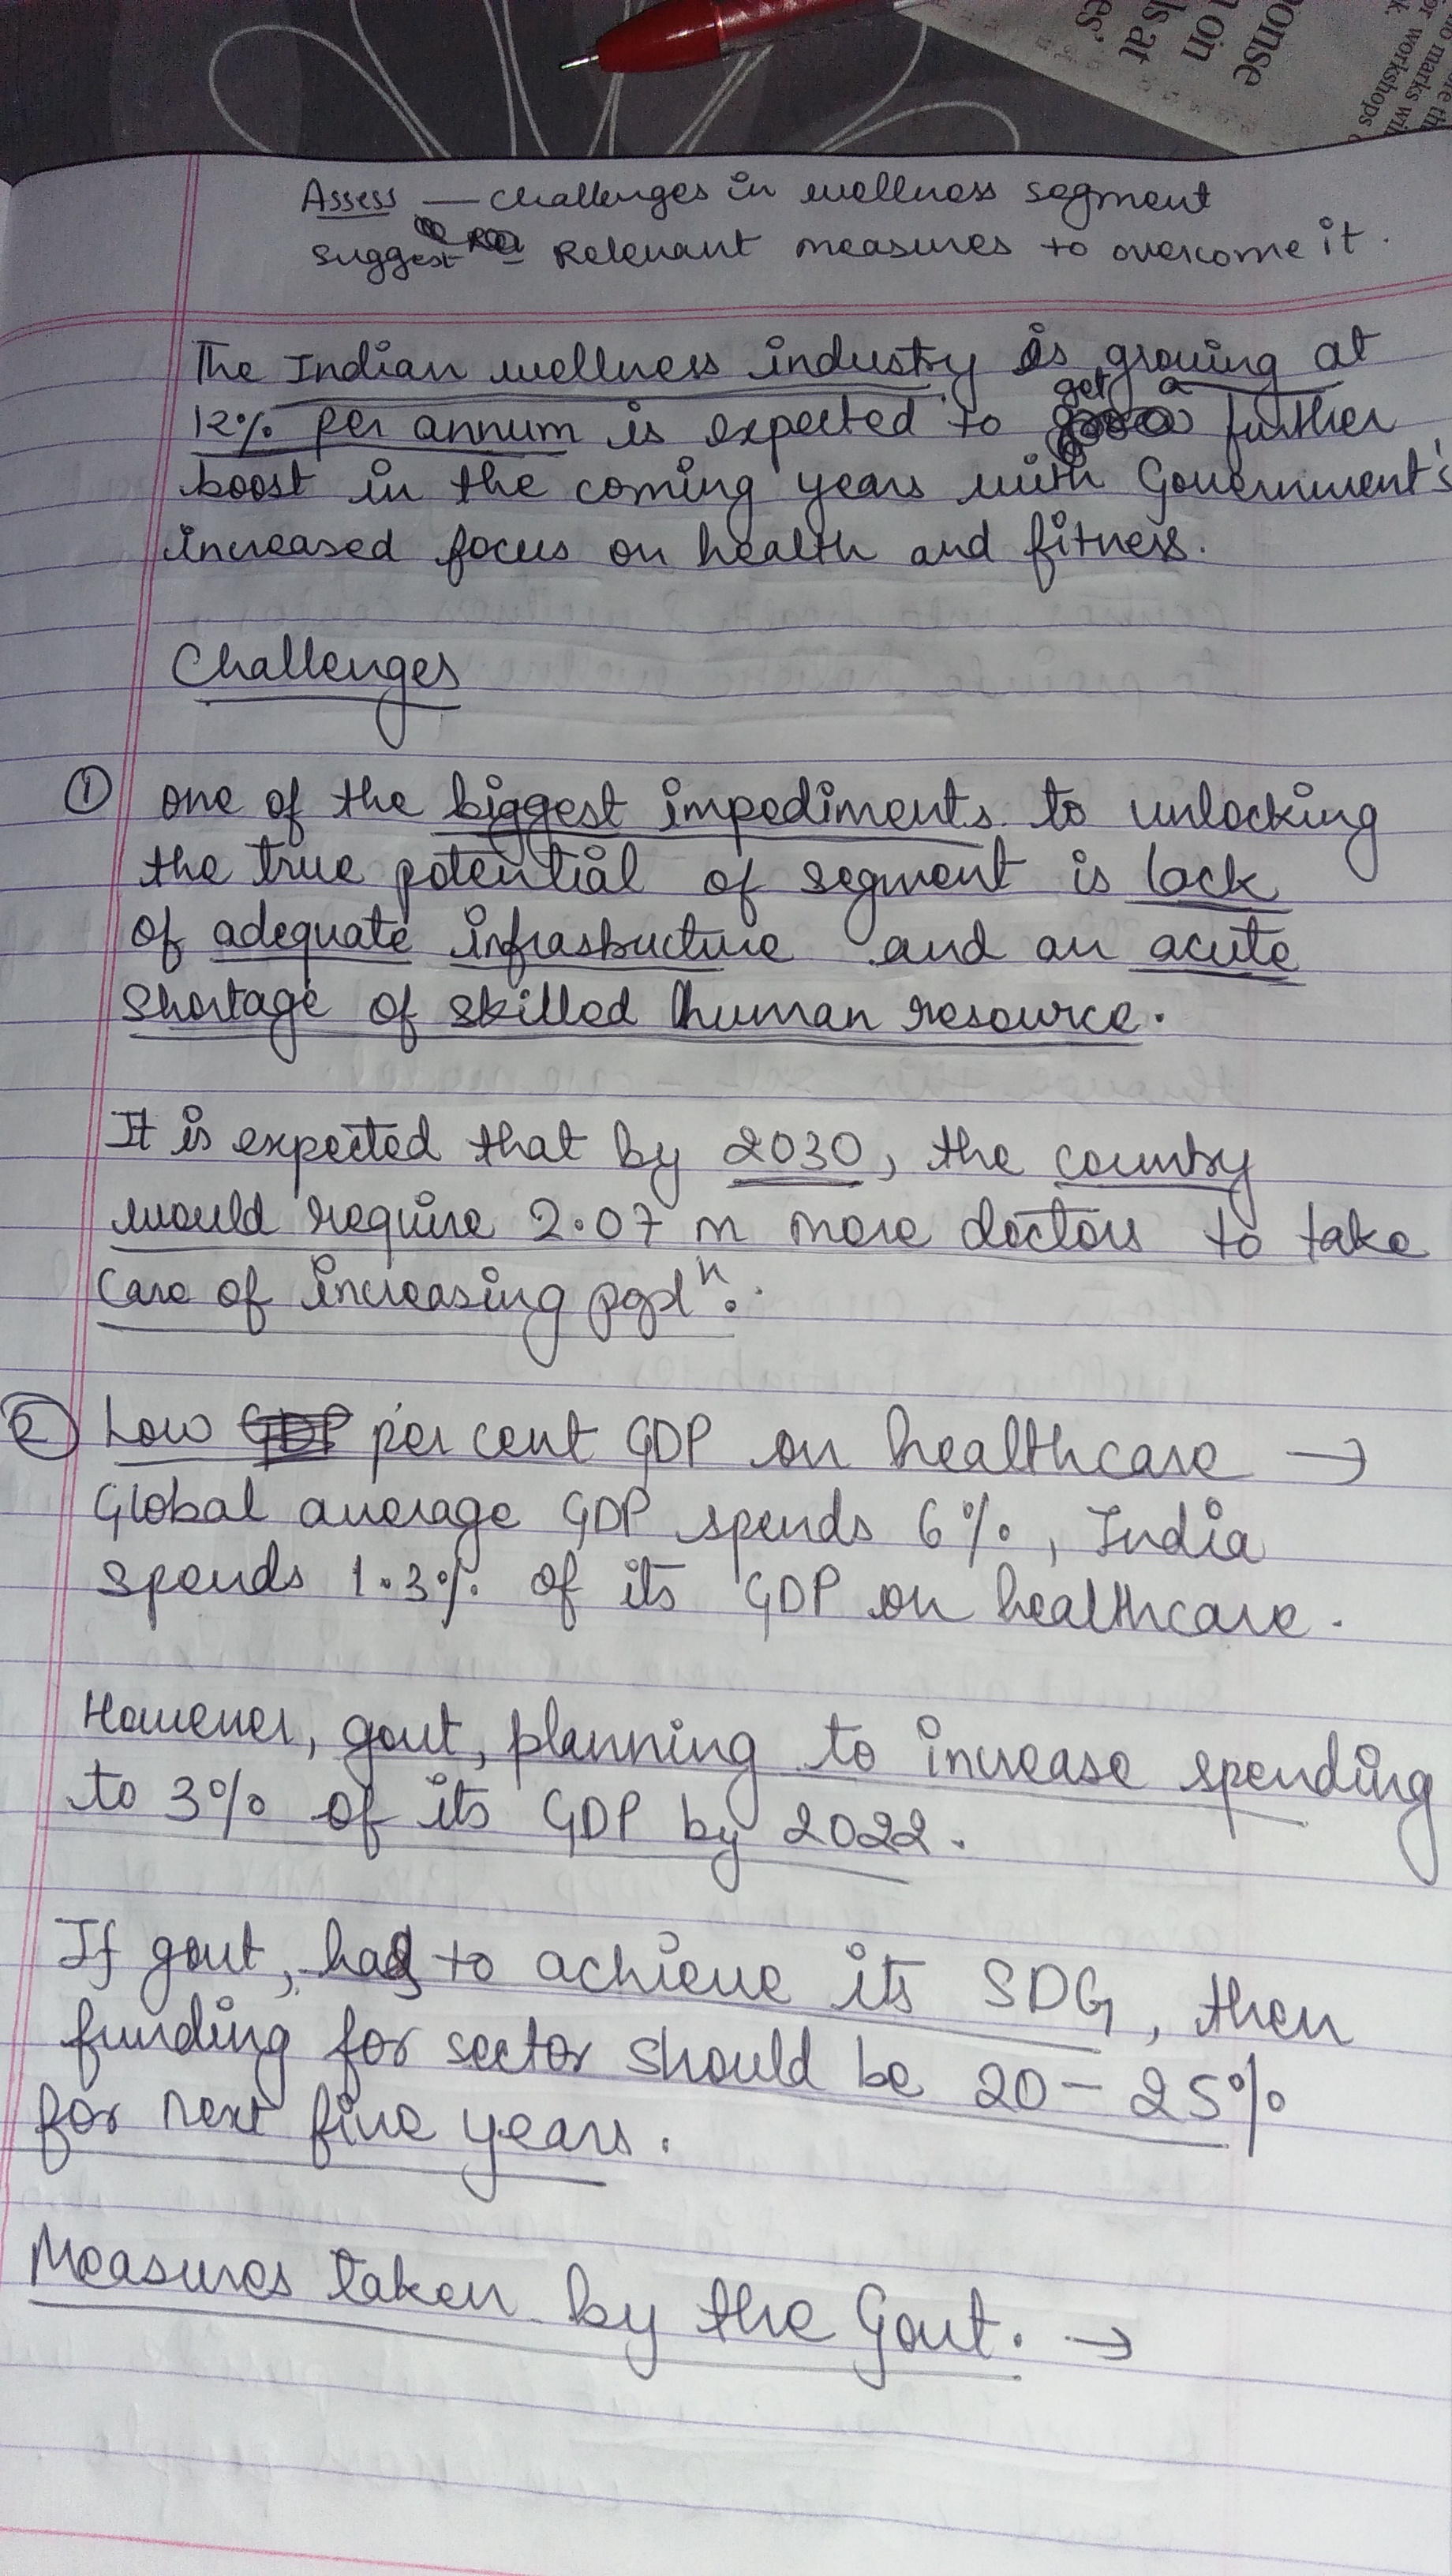 onse
on on
ls at
es'
re th
no marks wil
or workshops
k.
Assess — challenges in wellness segment
Suggest – Relevant measures to overcome it.
The Indian wellness industry is growing at
12% per annum is expected to get a further
boost in the coming years with Government's
increased focus on health and fitness.
Challenges
① one of the biggest impediments to unlocking
the true potential of segment is lack
of adequate infrastructure and an acute
shortage of skilled human resource.
It is expected that by 2030, the country
would require 2.07 m more doctors to take
care of increasing popln.
② Low per cent GDP on healthcare →
Global average GDP spends 6%, India
spends 1.3% of its GDP on healthcare.
However, govt, planning to increase spending
to 3% of its GDP by 2022.
If govt, has to achieve its SDG, then
funding for sector should be 20 – 25%
for next five years.
Measures taken by the Govt. →